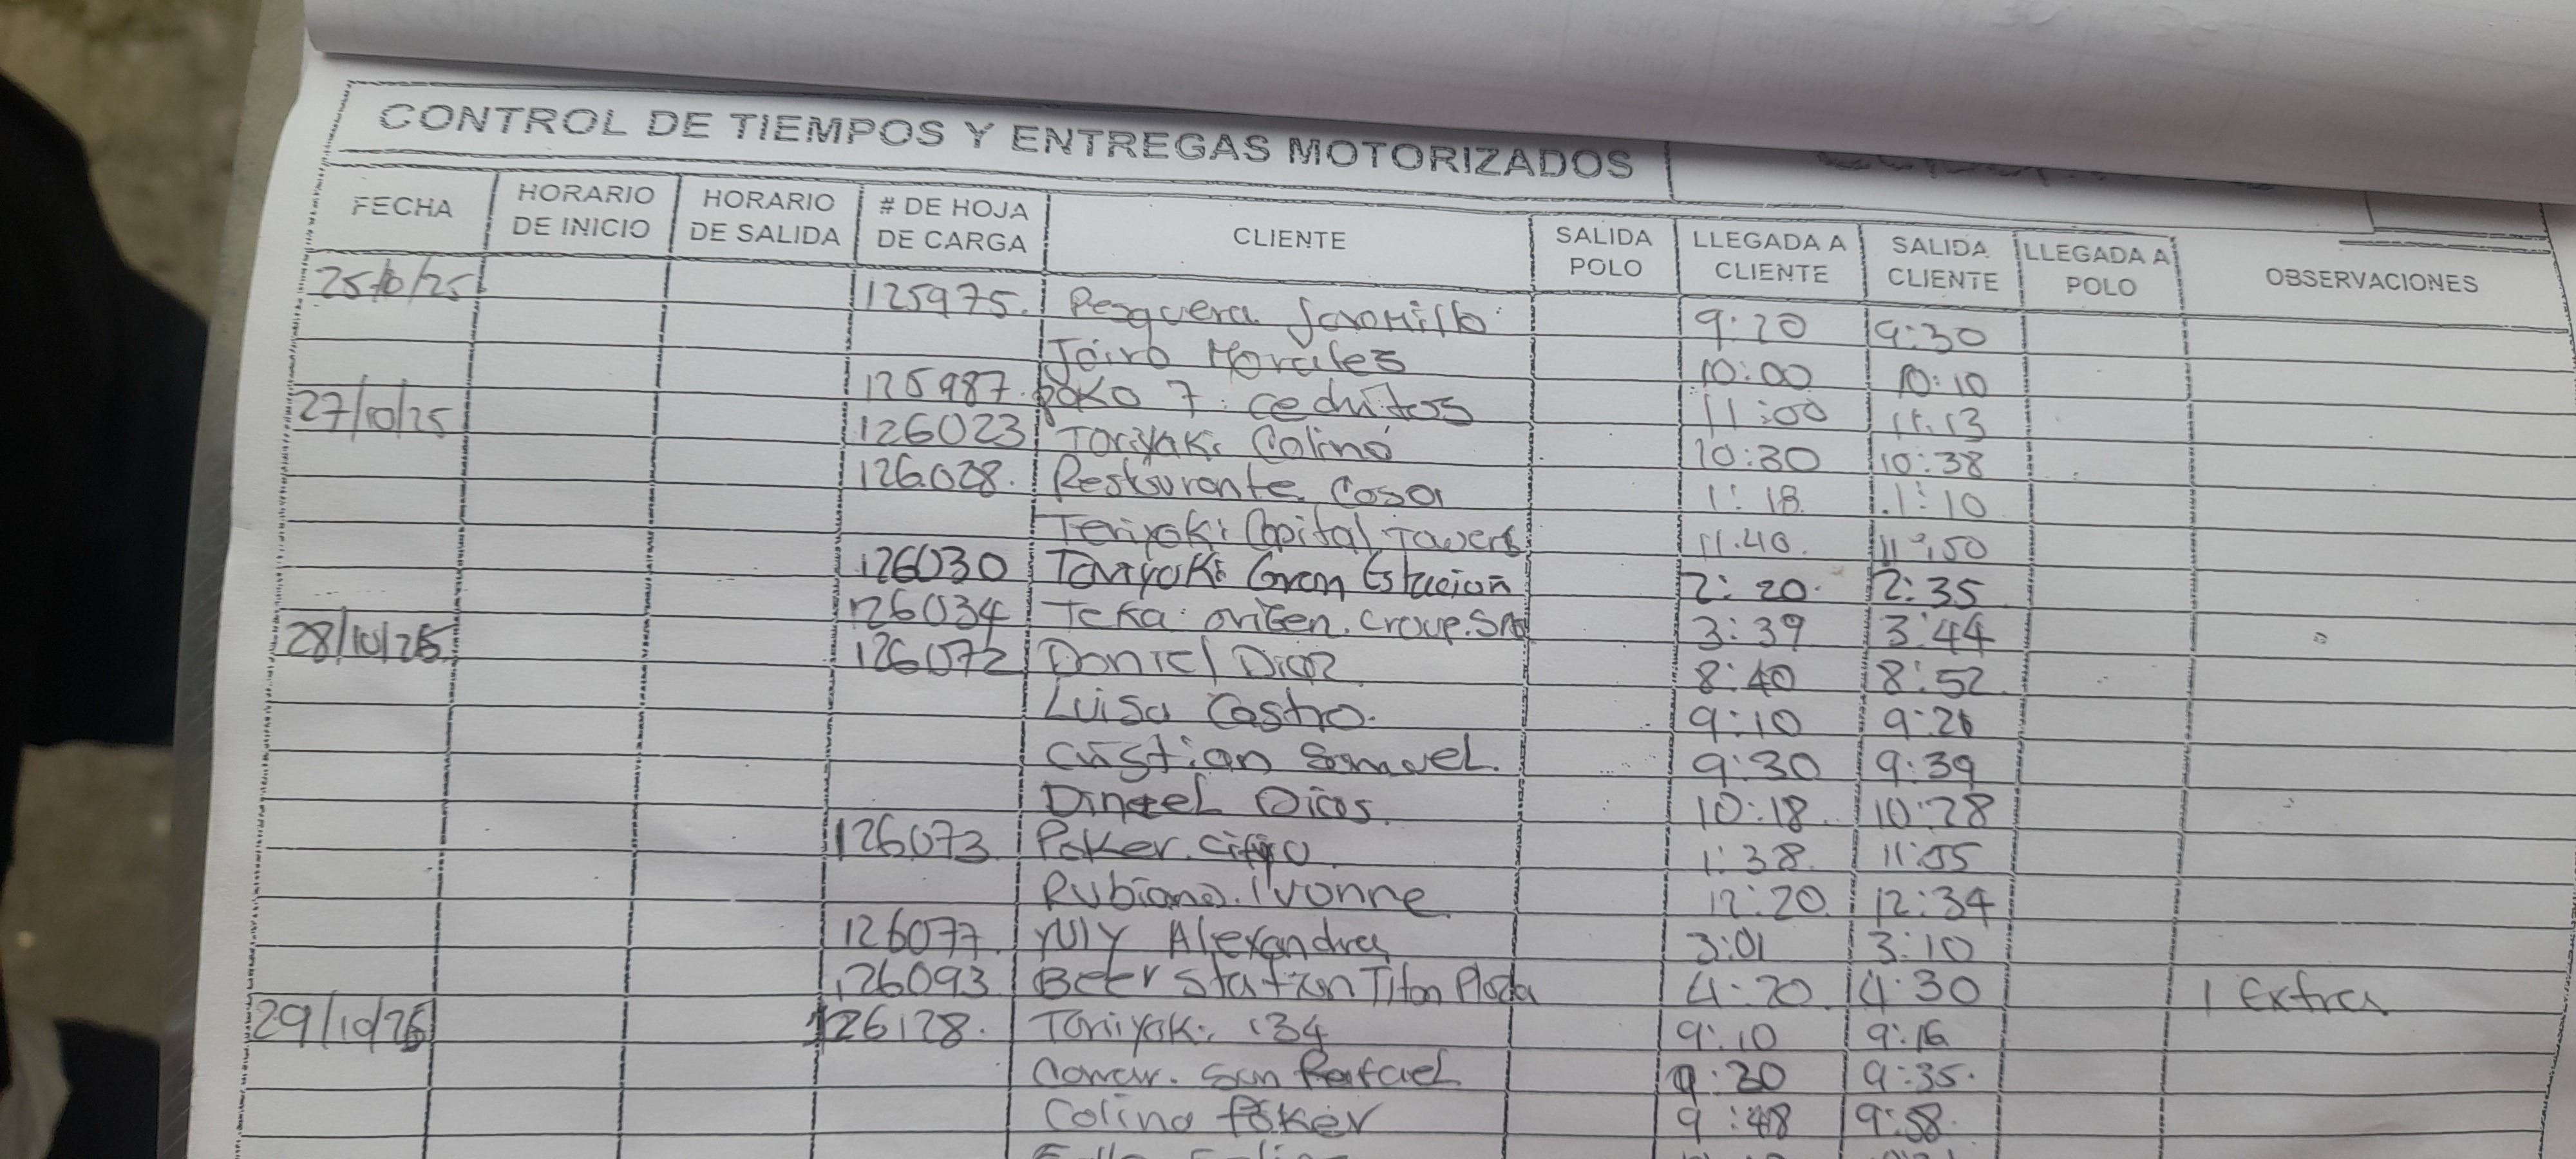 CONTROL DE TIEMPOS Y ENTREGAS MOTORIZADOS
FECHA HORARIO DE INICIO HORARIO DE SALIDA # DE HOJA DE CARGA CLIENTE SALIDA POLO LLEGADA A CLIENTE SALIDA CLIENTE LLEGADA A POLO OBSERVACIONES
25/10/25 125975. Pesquera Jaramillo 9:20 9:30
Jairo Morales 10:00 10:10
125987. poko 7. cedritos 11:00 11:13
27/10/25 126023 Toriyaki Colina 10:30 10:38
126028. Restaurante Casa 1:18 1:10
Teriyaki Capital Towers 11:40. 11:50
126030 Toriyaki Gran Estacion 2:20. 2:35
126034 Teka. origen. Group. SAS 3:39 3:44
28/10/25 126072 Daniel Diaz 8:40 8:52
Luisa Castro. 9:10 9:26
Cristian Samuel. 9:30 9:39
10:18 10:28
126073 Poker. 1:38 11:55
Rubiano. Ivonne 12:20 12:34
126077 Yuly Alexandra 3:01 3:10
126093 Beer Station Titan Plaza 4:20 4:30 1 Extra
29/10/25 126128. Toriyaki 134 9:10 9:16
San Rafael 9:30 9:35.
Colina Poker 9:48 9:58